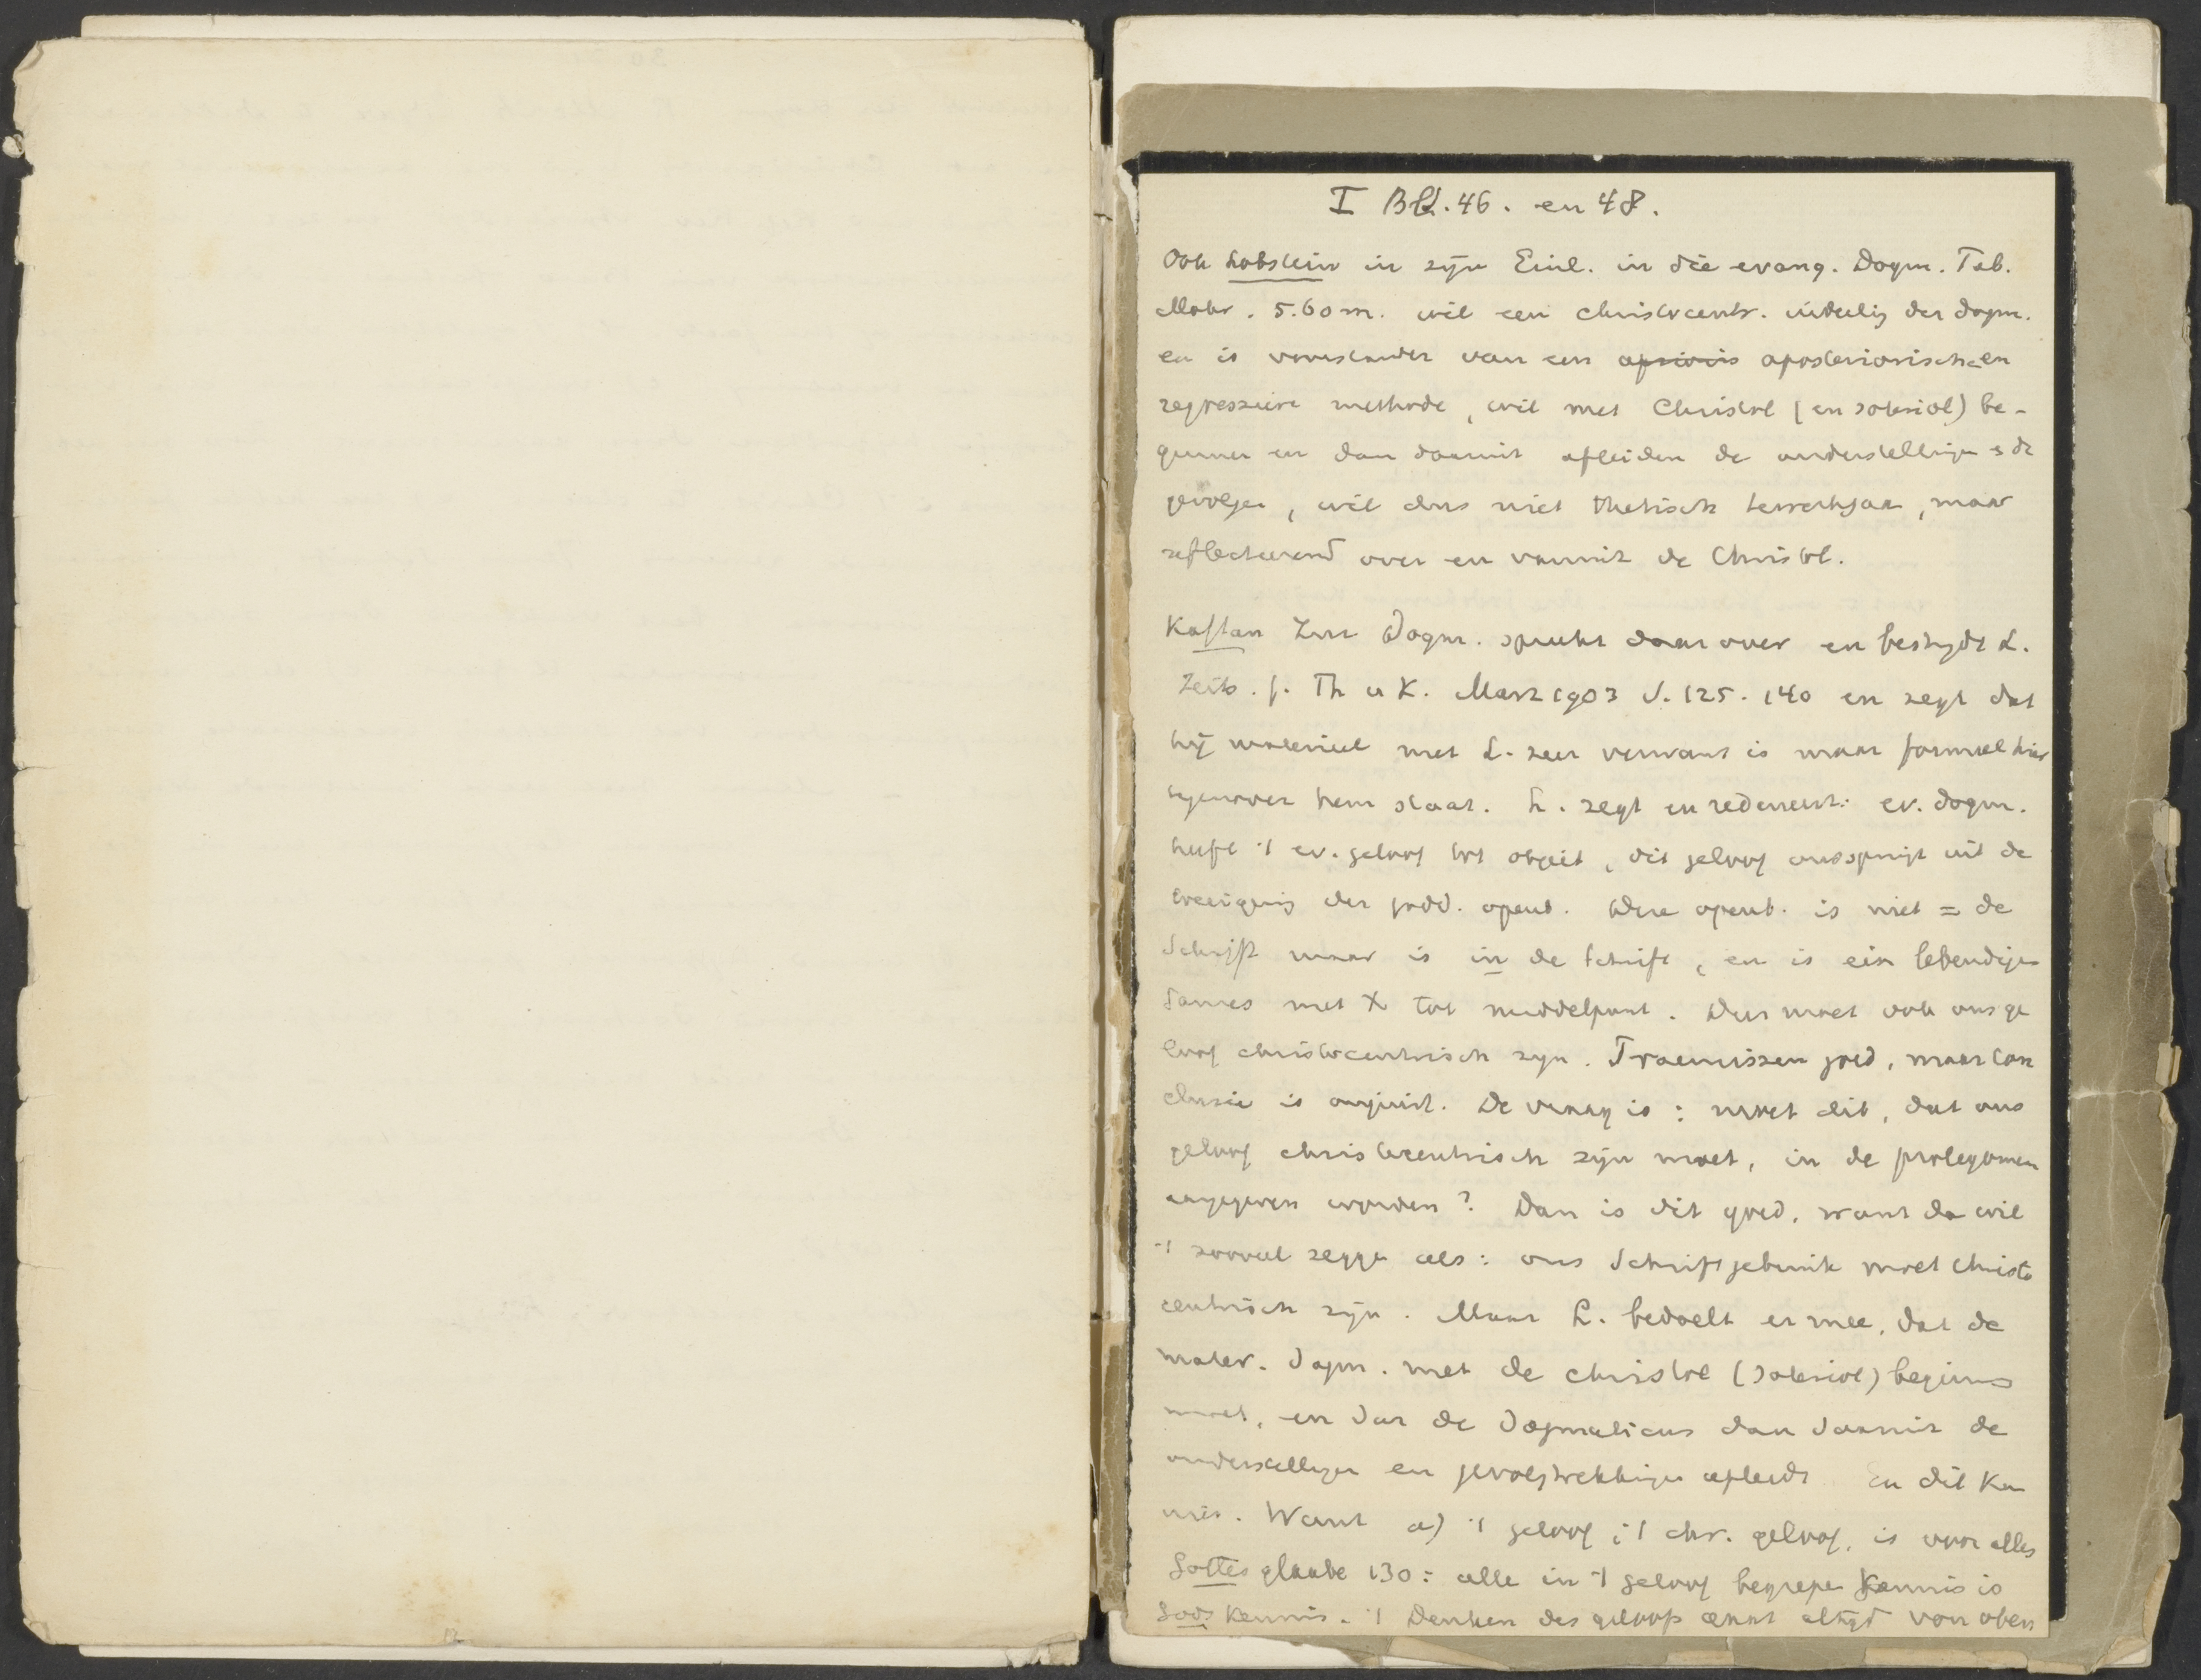 I Blz. 46. en 48.
Ook Lobstein in zijn Einl. in die evang. Dogm. Tüb.
Mohr. 5.60 m. wil een christocentr. indeeling der dogm.
en is voorstander van een aprioris aposteriorischen
regressieve methode, wil met Christol (en soteriol) be-
ginnen en dan daaruit afleiden de onderstellingen & de
gevolgen, wil dus niet thetisch te werk gaan, maar
reflecteerend over en vanuit de Christol.
Kaftan Zur Dogm. spreekt daarover en bestrijdt L.
Zeits. f. Th u K. Marz 1903 S. 125-140 en zegt dat
hij materieel met L. zeer verwant is maar formeel hier
tegenover hem staat. L. zegt en redeneert: ev. dogm.
heeft 't ev. geloof tot object, dit geloof ontspringt uit de
toeeigening der godd. openb. Deze openb. is niet = de
Schrift maar is in de Schrift, en is ein lebendiges
Ganzes met X tot middelpunt. Dus moet ook ons ge
loof christocentrisch zijn. Praemissen goed, maar con
clusie is onjuist. De vraag is: moet dit, dat ons
geloof christocentrisch zijn moet, in de prolegomen
aangegeven worden? Dan is dit goed, want dan wil
't zooveel zeggen als: ons Schriftgebruik moet christo
centrisch zijn. Maar L. bedoelt er mee, dat de
mater. Dogm. met de christol (soteriol) beginnen
moet, en dat de Dogmaticus dan daaruit de
onderstellingen en gevolgtrekkingen afleidt En dit kan
niet. Want a) 't geloof, 't chr. geloof, is voor alles
Gottesglaube 130: alle in 't geloof begrepen kennis is
Godskennis. 't Denken des geloofs gaat altijd von oben